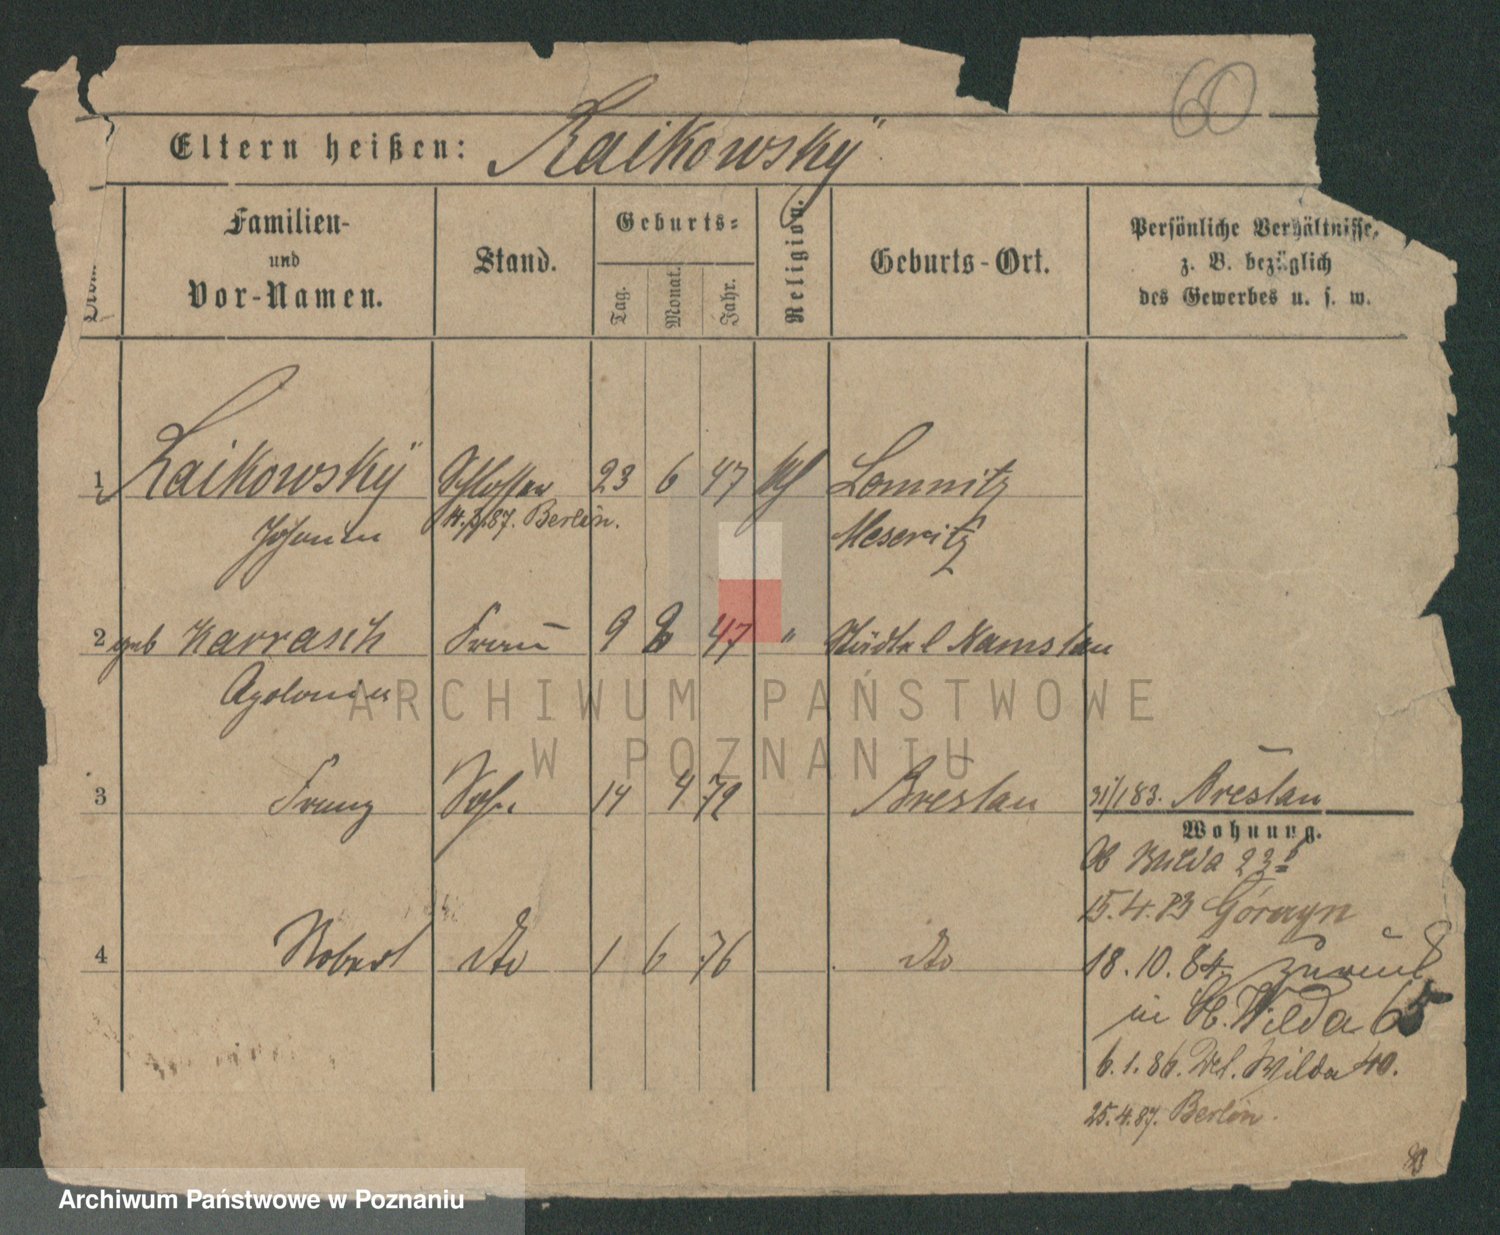 60
Eltern heißen: Raikowskÿ
Familien-
und
Vor-Namen.
Stand.
Geburts-
Tag.
Monat.
Jahr.
Religion.
Geburts-Ort.
Persönliche Verhältnisse,
z. B. bezüglich
des Gewerbes u. s. w.
1 Raikowskÿ Schlosser 23 6 47 Lomnitz
Johann 87. Berlin. Meseritz
2 geb Karrasch Frau 9 47 " Städtel Namslau
Apolonia
3 Franz Sohn 14 4 72 Breslau 31/1 83. Breslau
Wohnung.
Ob Wilda 23b
15.4.83 Górczyn
4 Robert dto 1 6 76 dto 18.10.84. zurück
in Ob. Wilda 65
6.1.86. Wilda 40.
25.4.87. Berlin.
ARCHIWUM PAŃSTWOWE
W POZNANIU
Archiwum Państwowe w Poznaniu